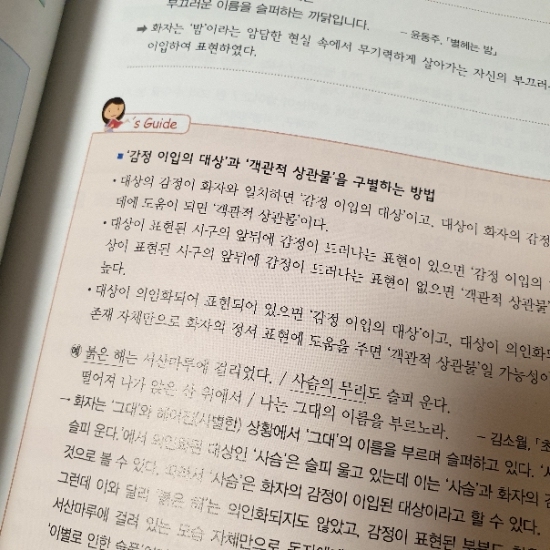 부끄러운 이름을 슬퍼하는 까닭입니다.
- 윤동주, 「별헤는 밤」
➡ 화자는 '밤'이라는 암담한 현실 속에서 무기력하게 살아가는 자신의 부끄러
이입하여 표현하였다.
's Guide
■ '감정 이입의 대상'과 '객관적 상관물'을 구별하는 방법
• 대상의 감정이 화자와 일치하면 '감정 이입의 대상'이고, 대상이 화자의 감정
데에 도움이 되면 '객관적 상관물'이다.
• 대상이 표현된 시구의 앞뒤에 감정이 드러나는 표현이 있으면 '감정 이입의
상이 표현된 시구의 앞뒤에 감정이 드러나는 표현이 없으면 '객관적 상관물'
높다.
• 대상이 의인화되어 표현되어 있으면 '감정 이입의 대상'이고, 대상이 의인화되
존재 자체만으로 화자의 정서 표현에 도움을 주면 '객관적 상관물'일 가능성이
예 붉은 해는 서산마루에 걸리었다. / 사슴의 무리도 슬피 운다.
떨어져 나가 앉은 산 위에서 / 나는 그대의 이름을 부르노라.
- 김소월, 「초
→ 화자는 '그대'와 헤어진(사별한) 상황에서 '그대'의 이름을 부르며 슬퍼하고 있다. '사
슬피 운다.'에서 의인화된 대상인 '사슴'은 슬피 울고 있는데 이는 '사슴'과 화자의 감
것으로 볼 수 있다. 따라서 '사슴'은 화자의 감정이 이입된 대상이라고 할 수 있다.
그런데 이와 달리 '붉은 해'는 의인화되지도 않았고, 감정이 표현된 부분도
서산마루에 걸려 있는 모습 자체만으로
'이별로 인한 슬픔'